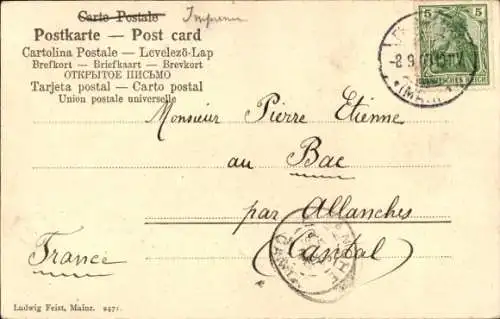 Carte Postale Imprimé
Postkarte — Post card
Cartolina Postale — Levelező-Lap
Brefkort — Briefkaart — Brevkort
ОТКРЫТОЕ ПИСЬМО
Tarjeta postal — Carto postal
Union postale universelle
5 5
DEUTSCHES REICH
Monsieur Pierre Etienne
au Bac
par Allanches
Cantal
France
Ludwig Feist, Mainz. 2471.